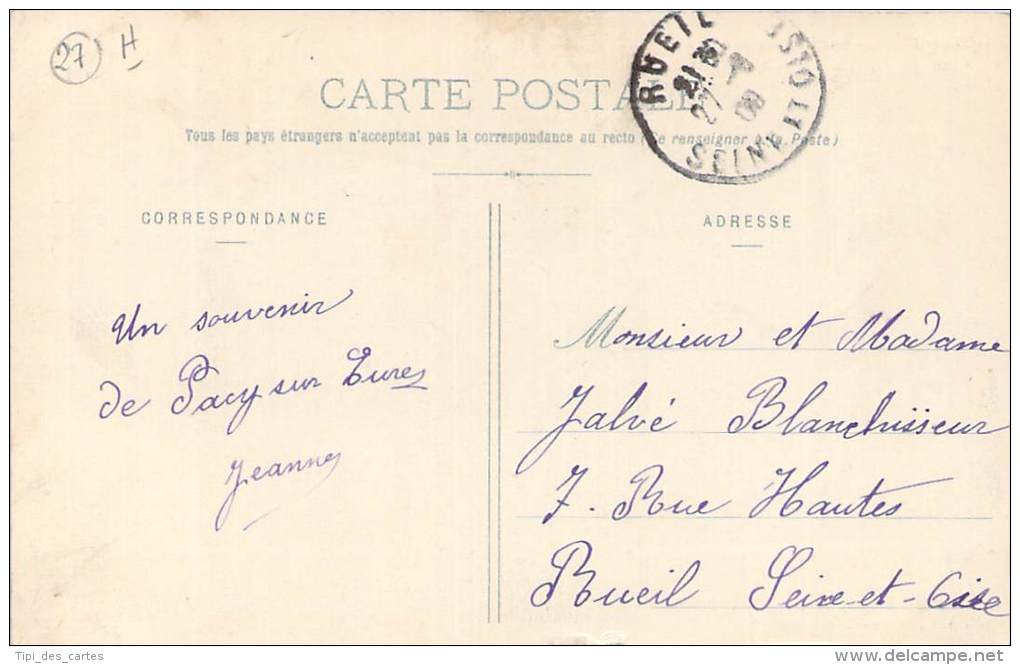 27 H
CARTE POSTALE
Tous les pays étrangers n'acceptent pas la correspondance au recto (Se renseigner à la Poste)
RUEIL
SEINE
21
27
08
CORRESPONDANCE
Un souvenir
de Pacy sur Eures
Jeanne
ADRESSE
Monsieur et Madame
Jalvé Blanchisseur
7. Rue Hautes
Rueil Seine-et-Oise
Tipi_des_cartes
delcampe.net